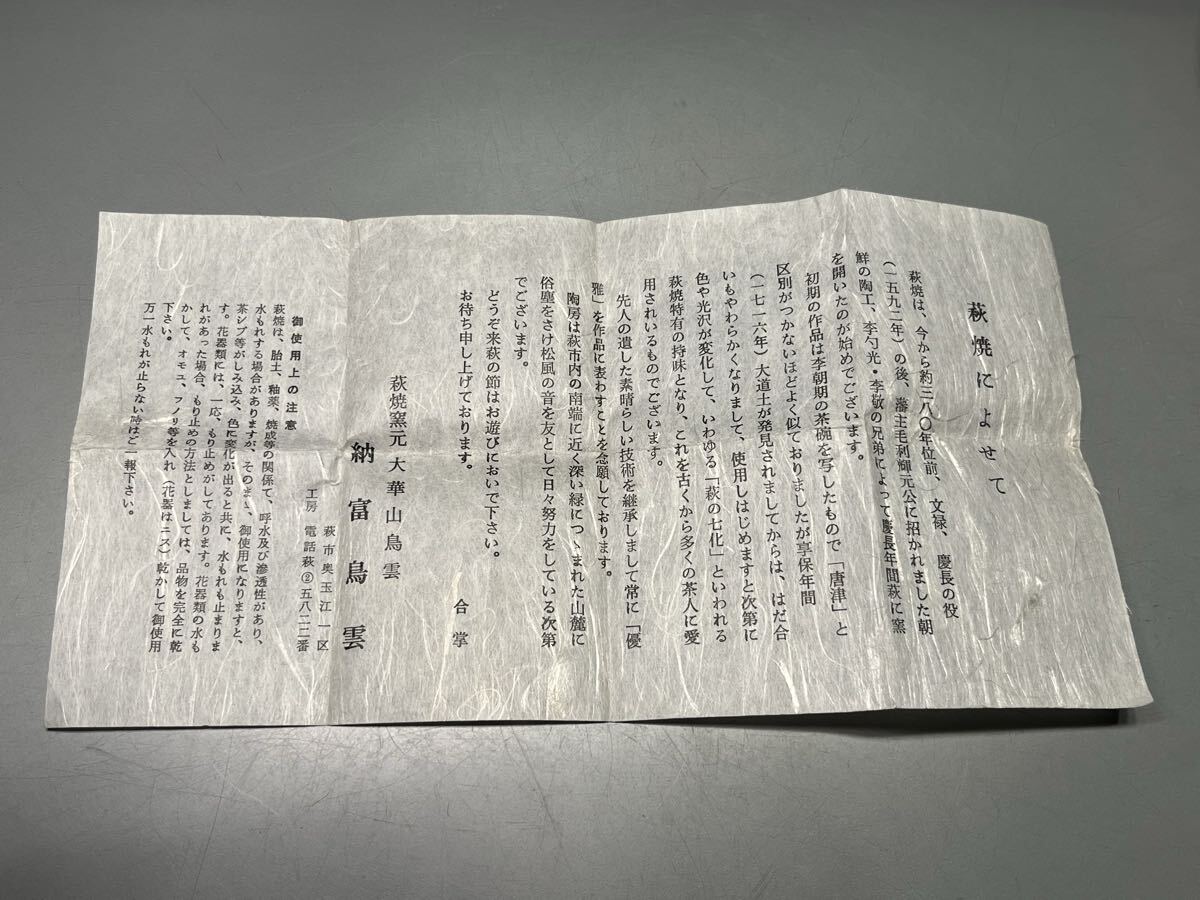 萩焼によせて
萩焼は、今から約三八〇年位前、文禄、慶長の役
(一五九二年)の後、藩主毛利輝元公に招かれました朝
鮮の陶工、李勺光・李敬の兄弟によって慶長年間萩に窯
を開いたのが始めでございます。
初期の作品は李朝期の茶碗を写したもので「唐津」と
区別がつかないほどよく似ておりましたが享保年間
(一七一六年)大道土が発見されましてからは、はだ合
いもやわらかくなりまして、使用しはじめますと次第に
色や光沢が変化して、いわゆる「萩の七化」といわれる
萩焼特有の持味となり、これを古くから多くの茶人に愛
用されいるものでございます。
先人の遺した素晴らしい技術を継承しまして常に「優
雅」を作品に表わすことを念願しております。
陶房は萩市内の南端に近く深い緑につゝまれた山麓に
俗塵をさけ松風の音を友として日々努力をしている次第
でございます。
どうぞ来萩の節はお遊びにおいで下さい。
お待ち申し上げております。
合掌
萩焼窯元大華山鳥雲
納富鳥雲
萩市奥玉江一区
工房 電話萩②五八二二番
御使用上の注意
萩焼は、胎土、釉薬、焼成等の関係て、呼水及び滲透性があり、
水もれする場合がありますが、そのまゝ、御使用になりますと、
茶シブ等がしみ込み、色に変化が出ると共に、水もれも止まりま
す。花器類には、一応、もり止めがしてあります。花器類の水も
れがあった場合、もり止めの方法としましては、品物を完全に乾
かして、オモユ、フノリ等を入れ(花器はニス)乾かして御使用
下さい。
万一水もれが止らない時はご一報下さい。